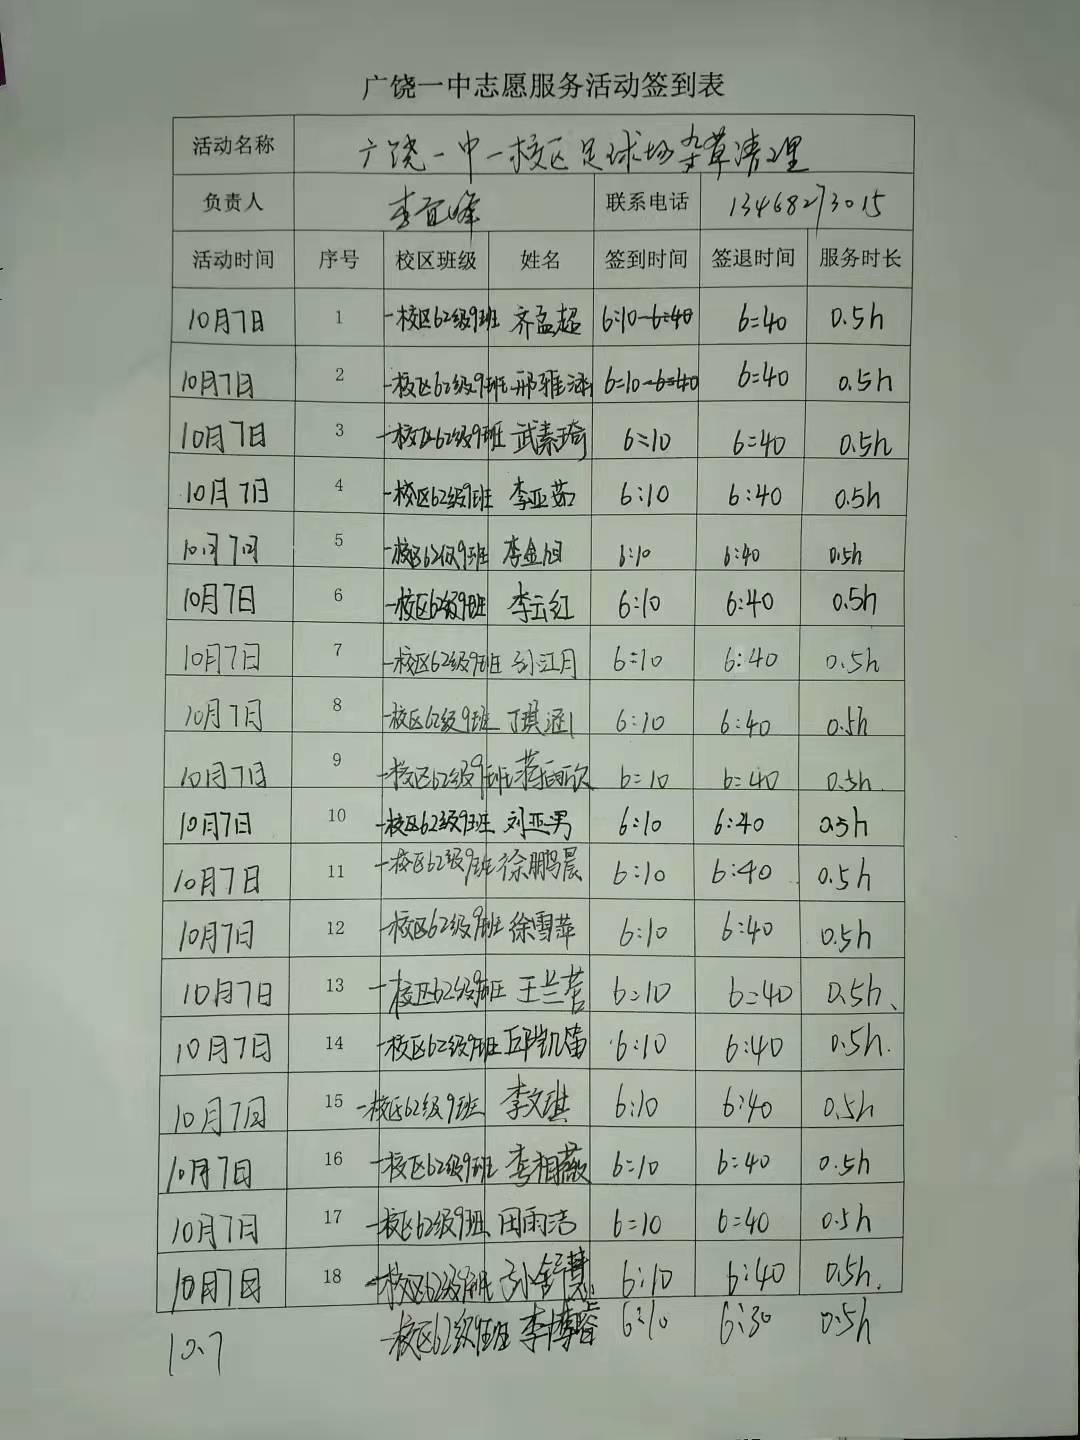 广饶一中志愿服务活动签到表
活动名称 广饶一中一校区足球场杂草清理
负责人 李宜峰 联系电话 13468273015
活动时间 序号 校区班级 姓名 签到时间 签退时间 服务时长
10月7日 1 一校区62级9班 齐孟超 6:10-6:40 6:40 0.5h
10月7日 2 一校区62级9班 邢雅涵 6:10-6:40 6:40 0.5h
10月7日 3 一校区62级9班 武素琦 6:10 6:40 0.5h
10月7日 4 一校区62级9班 李亚茹 6:10 6:40 0.5h
10月7日 5 一校区62级9班 李金旭 6:10 6:40 0.5h
10月7日 6 一校区62级9班 李云红 6:10 6:40 0.5h
10月7日 7 一校区62级9班 孙江月 6:10 6:40 0.5h
10月7日 8 一校区62级9班 丁琪涵 6:10 6:40 0.5h
10月7日 9 一校区62级9班 蒋雨欣 6:10 6:40 0.5h
10月7日 10 一校区62级9班 刘亚男 6:10 6:40 0.5h
10月7日 11 一校区62级9班 徐鹏晨 6:10 6:40 0.5h
10月7日 12 一校区62级9班 徐雪苹 6:10 6:40 0.5h
10月7日 13 一校区62级9班 王兰 6:10 6:40 0.5h、
10月7日 14 一校区62级9班 邱凯笛 6:10 6:40 0.5h.
10月7日 15 一校区62级9班 李文琪 6:10 6:40 0.5h
10月7日 16 一校区62级9班 李相薇 6:10 6:40 0.5h
10月7日 17 一校区62级9班 田雨洁 6:10 6:40 0.5h
10月7日 18 一校区62级9班 孙舒慧 6:10 6:40 0.5h.
10.7 一校区62级9班 李博睿 6:10 6:30 0.5h